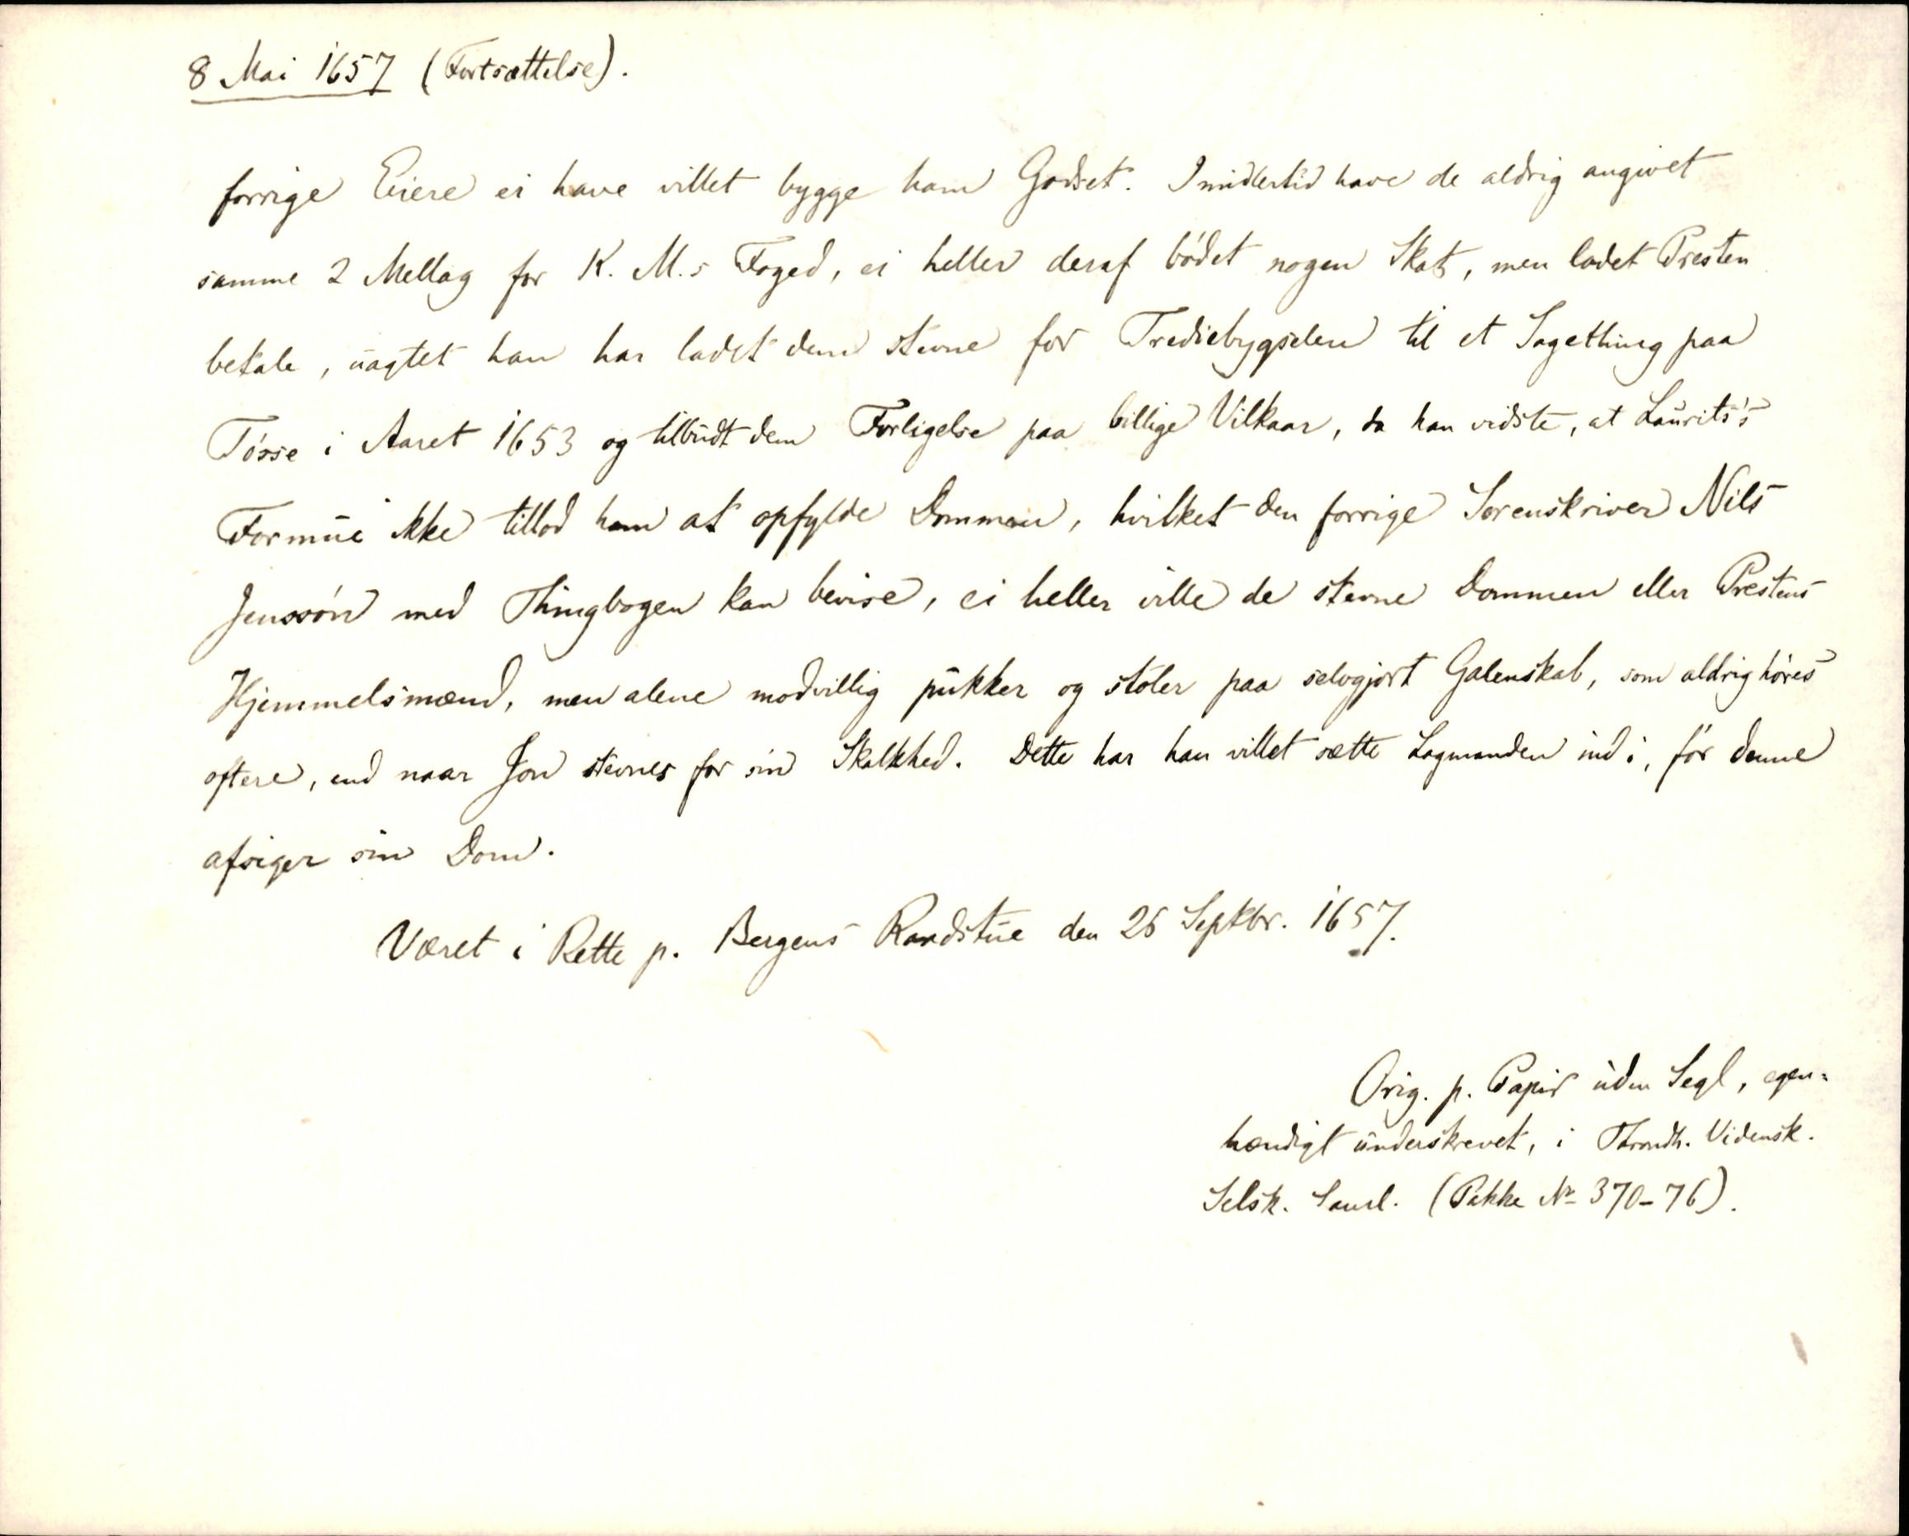 8 Mai 1657 (Fortsættelse).
forrige Eiere ei have villet bygge ham Godset. Imidlertid have de aldrig angivet
samme 2 Mellag for K. M.s Foged, ei heller deraf bödet nogen Skat, men ladet Presten
betale, uagtet han har ladet dem stevne for Trediebygselen til et Sagething paa
Tösse i Aaret 1653 og tilbudt dem Forligelse paa billige Vilkaar, da han vidste, at Laurits's
Formue ikke tillod ham at opfylde Dommen, hvilket den forrige Sorenskriver Nils
Jenssön med Thingbogen kan bevise, ei heller ville de stevne Dommen eller Prestens
Hjemmelsmænd, men alene modvillig pukker og stoler paa selvgjort Galenskab, som aldrig höres
oftere, end naar Jon stevnes for sin Skalkhed. Dette har han villet sætte Lagmanden ind i, för denne
afsiger sin Dom.
Været i Rette p. Bergens Raadstue den 26 Septbr. 1657.
Orig. p. Papir uden Segl, egen-
hændigt underskrevet, i Throndh. Vidensk.
Selsk. Saml. (Pakke No 370-76).